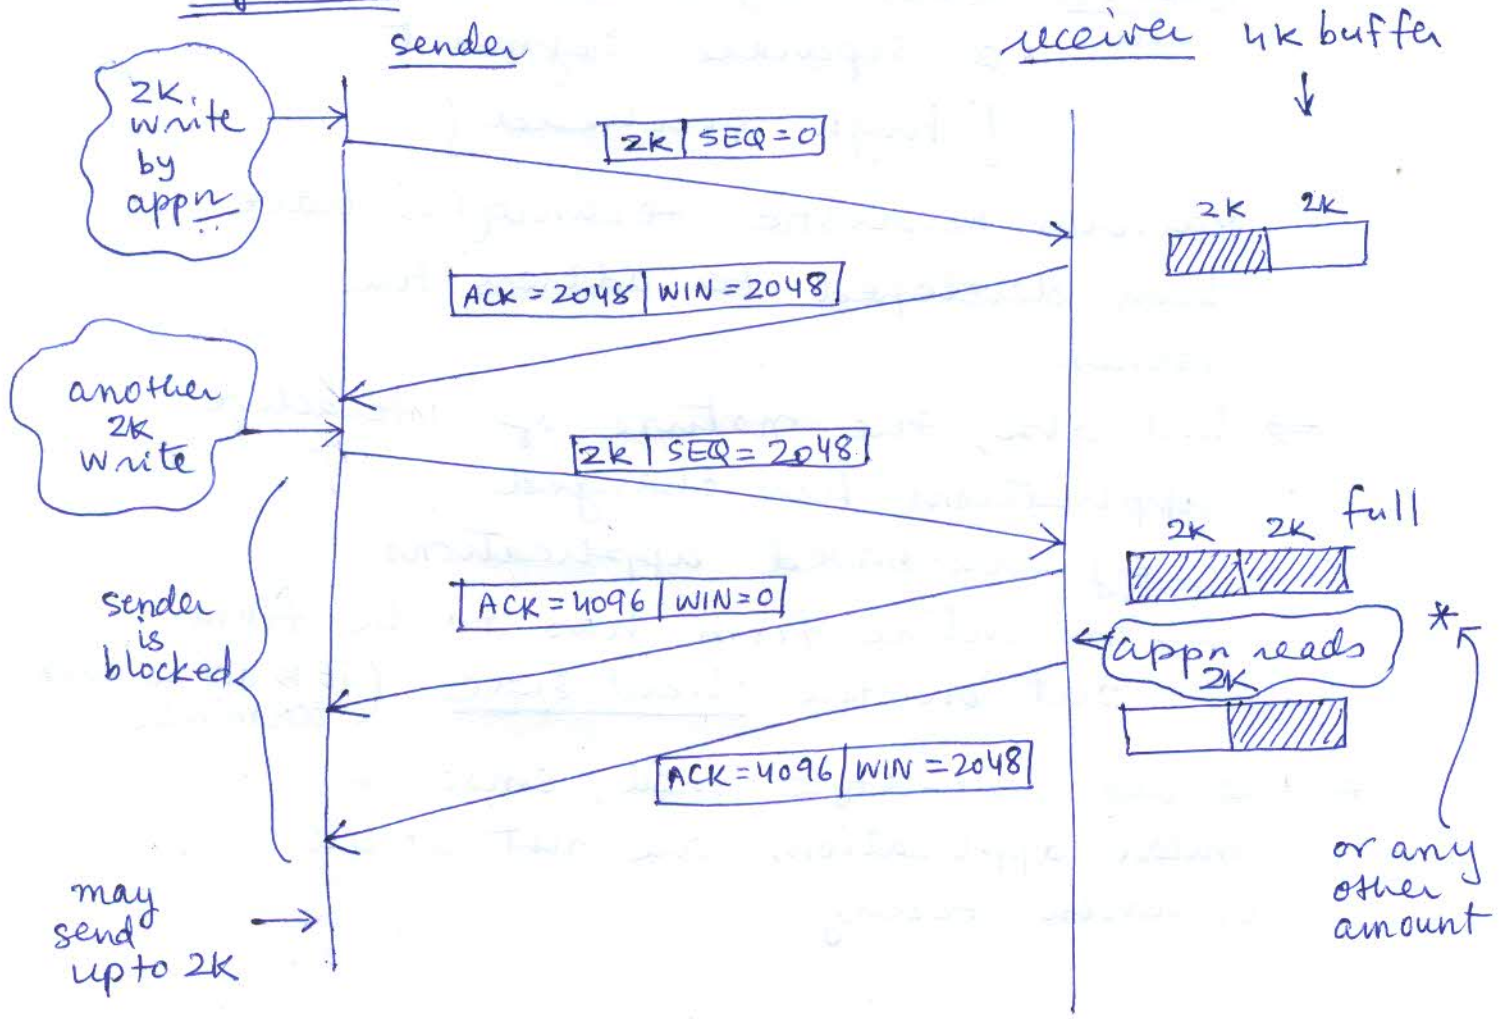 sender
receiver 4K buffer
2K
write
by
appn
2K | SEQ=0
2K 2K
ACK = 2048 | WIN=2048
another
2K
write
2K | SEQ = 2048
2K 2K full
sender
is
blocked
ACK = 4096 | WIN=0
appn reads
2K
*
ACK=4096 | WIN =2048
or any
other
amount
may
send
upto 2K